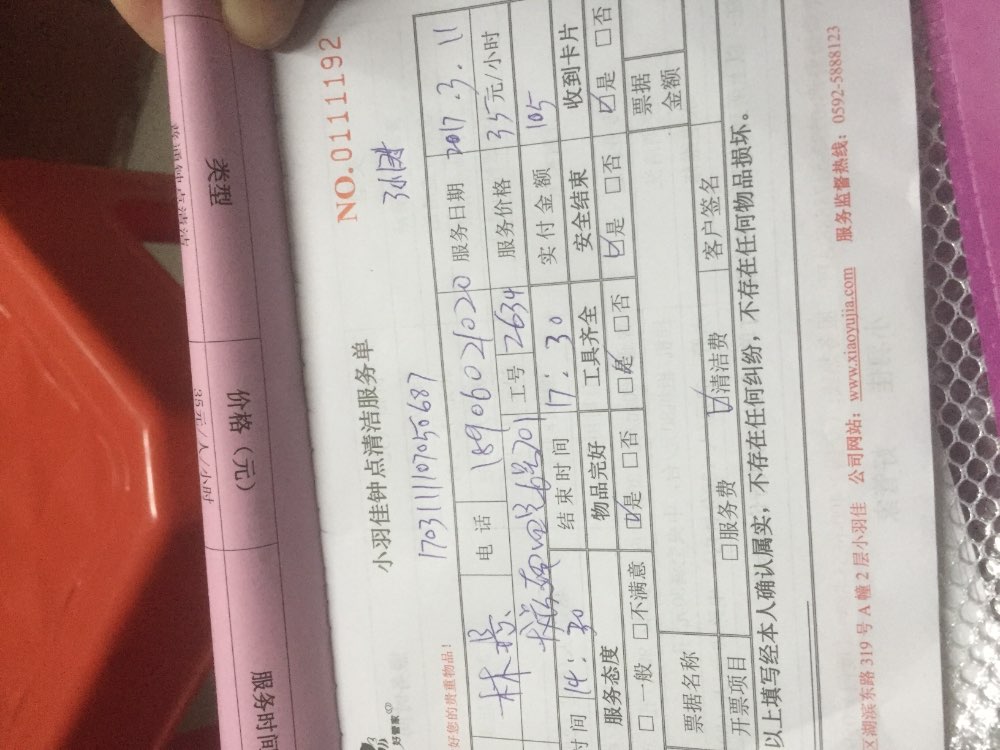 类型
价格（元）
服务时间
35元/人/小时
NO.0111192
小羽佳钟点清洁服务单
好管家
1703111107050687
好您的贵重物品！
电话 18906021020 服务日期 2017.3.11
工号 2634 服务价格 35元/小时
时间 14:30 结束时间 17:30 实付金额 105
服务态度 物品完好 工具齐全 安全结束 收到卡片
□一般 □不满意 ☑是 □否 ☑是 □否 ☑是 □否 ☑是 □否
票据名称 票据金额
开票项目 □服务费 ☑清洁费 客户签名
以上填写经本人确认属实，不存在任何纠纷，不存在任何物品损坏。
区湖滨东路 319 号 A 幢 2 层小羽佳 公司网站：www.xiaoyujia.com 服务监督热线：0592-5888123